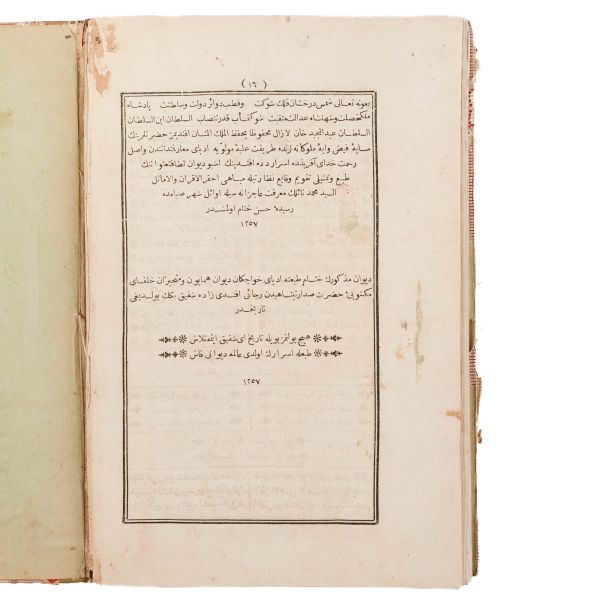 (١٦٠)
بعونه تعالى شمس درخشان فلك شوكت وقطب دوائر دولت وسلطنت پادشاه
ملكخصلت وشهنشاه عدالتمنقبت شوكتمآب قدرتنصاب السلطان ابن السلطان
السلطان عبدالمجيد خان لازال محفوظا بحفظ الملك المنان افنديمز حضرتلرينك
سايهٔ فيض وايهٔ ملوكانه لرنده طريقت عليهٔ مولويه ادباى معارفمندانندن واصل
رحمت خداى آفريننده اسرار دده افندينك اشبو ديوان لطافتعنواننك
طبع وتمثيلى تقويم وقايع نظارتيله مباهى احقر الاقران والاماثل
السيد محمد نائلك معرفت عاجزانه سيله اوائل شهر صيامده
رسيدهٔ حسن ختام اولمشدر
١٢٥٧
ديوان مذكورك ختام طبعنه ادباى خواجكان ديوان همايون ومتحيزان خلفاى
مكتوبئ حضرت صدارتپناهيدن رجائى افندى زاده شفيق بكك بولديغى
تاريخدر
هيچ بولنمز بويله تاريخ اى شفيق ايتمه تلاش
طبعله اسرارك اولدى عالمه ديوانى فاش
١٢٥٧